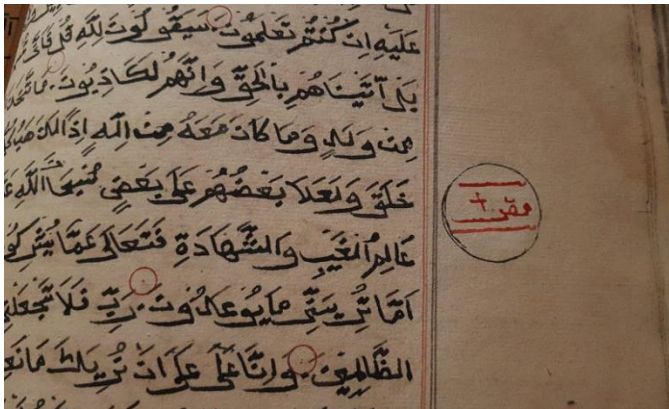 عَلَيْهِ اِنْ كُنْتُمْ تَعْلَمُونَ سَيَقُولُونَ لِلَّهِ قُلْ
بَلْ اَتَيْنَاهُمْ بِالْحَقِّ وَاِنَّهُمْ لَكَاذِبُونَ مَا
مِنْ وَلَدٍ وَمَا كَانَ مَعَهُ مِنْ اِلَهٍ
خَلَقَ وَلَعَلَا بَعْضُهُمْ عَلَى بَعْضٍ سُبْحَانَ اللَّهِ
عَالِمِ الْغَيْبِ وَالشَّهَادَةِ فَتَعَالَى عَمَّا يُشْرِكُو
اِمَّا تُرِيَنِّي مَا يُوعَدُونَ رَبِّ فَلَا تَجْعَلْنِي
الظَّلِمِينَ وَاِنَّا عَلَى عَلَى اَنْ نُرِيَكَ مَا